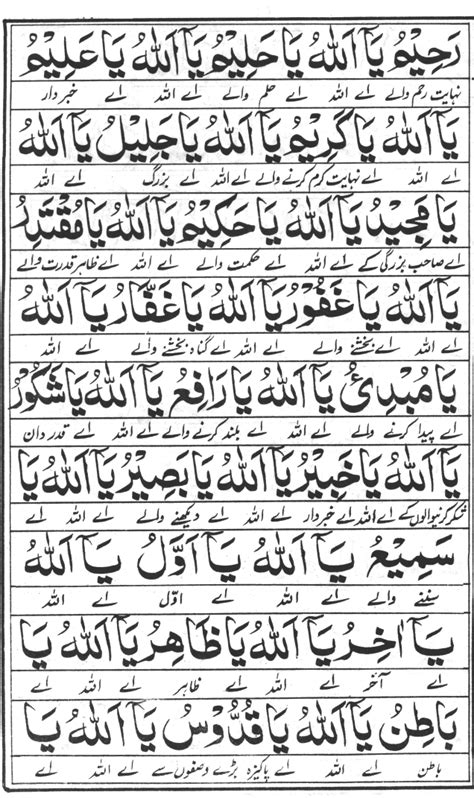 رَحِيْمُ يَآ اَللهُ يَا حَلِيْمُ يَآ اَللهُ يَا عَلِيْمُ
نہایت رحم والے اے اللہ اے حلم والے اے اللہ اے خبردار
يَآ اَللهُ يَا كَرِيْمُ يَآ اَللهُ يَا جَلِيْلُ يَآ اَللهُ
اے اللہ اے نہایت کرم کرنے والے اے اللہ اے بزرگ اے اللہ
يَا مَجِيْدُ يَآ اَللهُ يَا حَكِيْمُ يَآ اَللهُ يَا مُقْتَدِرُ
اے صاحب بزرگی کے اے اللہ اے حکمت والے اے اللہ اے ظاہر قدرت والے
يَآ اَللهُ يَا غَفُوْرُ يَآ اَللهُ يَا غَفَّارُ يَآ اَللهُ
اے اللہ اے بخشنے والے اے اللہ اے گناہ بخشنے والے اے اللہ
يَا مُبْدِئُ يَآ اَللهُ يَا رَافِعُ يَآ اَللهُ يَا شَكُوْرُ
اے پیدا کرنے والے اے اللہ اے بلند کرنے والے اے اللہ اے قدردان
يَآ اَللهُ يَا خَبِيْرُ يَآ اَللهُ يَا بَصِيْرُ يَآ اَللهُ يَا
شکر کرنیوالوں کے اے اللہ اے خبردار اے اللہ اے دیکھنے والے اے اللہ اے
سَمِيْعُ يَآ اَللهُ يَآ اَوَّلُ يَآ اَللهُ
سننے والے اے اللہ اے اوّل اے اللہ
يَآ اٰخِرُ يَآ اَللهُ يَا ظَاهِرُ يَآ اَللهُ يَا
اے آخر اے اللہ اے ظاہر اے اللہ اے
بَاطِنُ يَآ اَللهُ يَا قُدُّوْسُ يَآ اَللهُ يَا
باطن اے اللہ اے پاکیزہ بڑے وصفوں سے اے اللہ اے